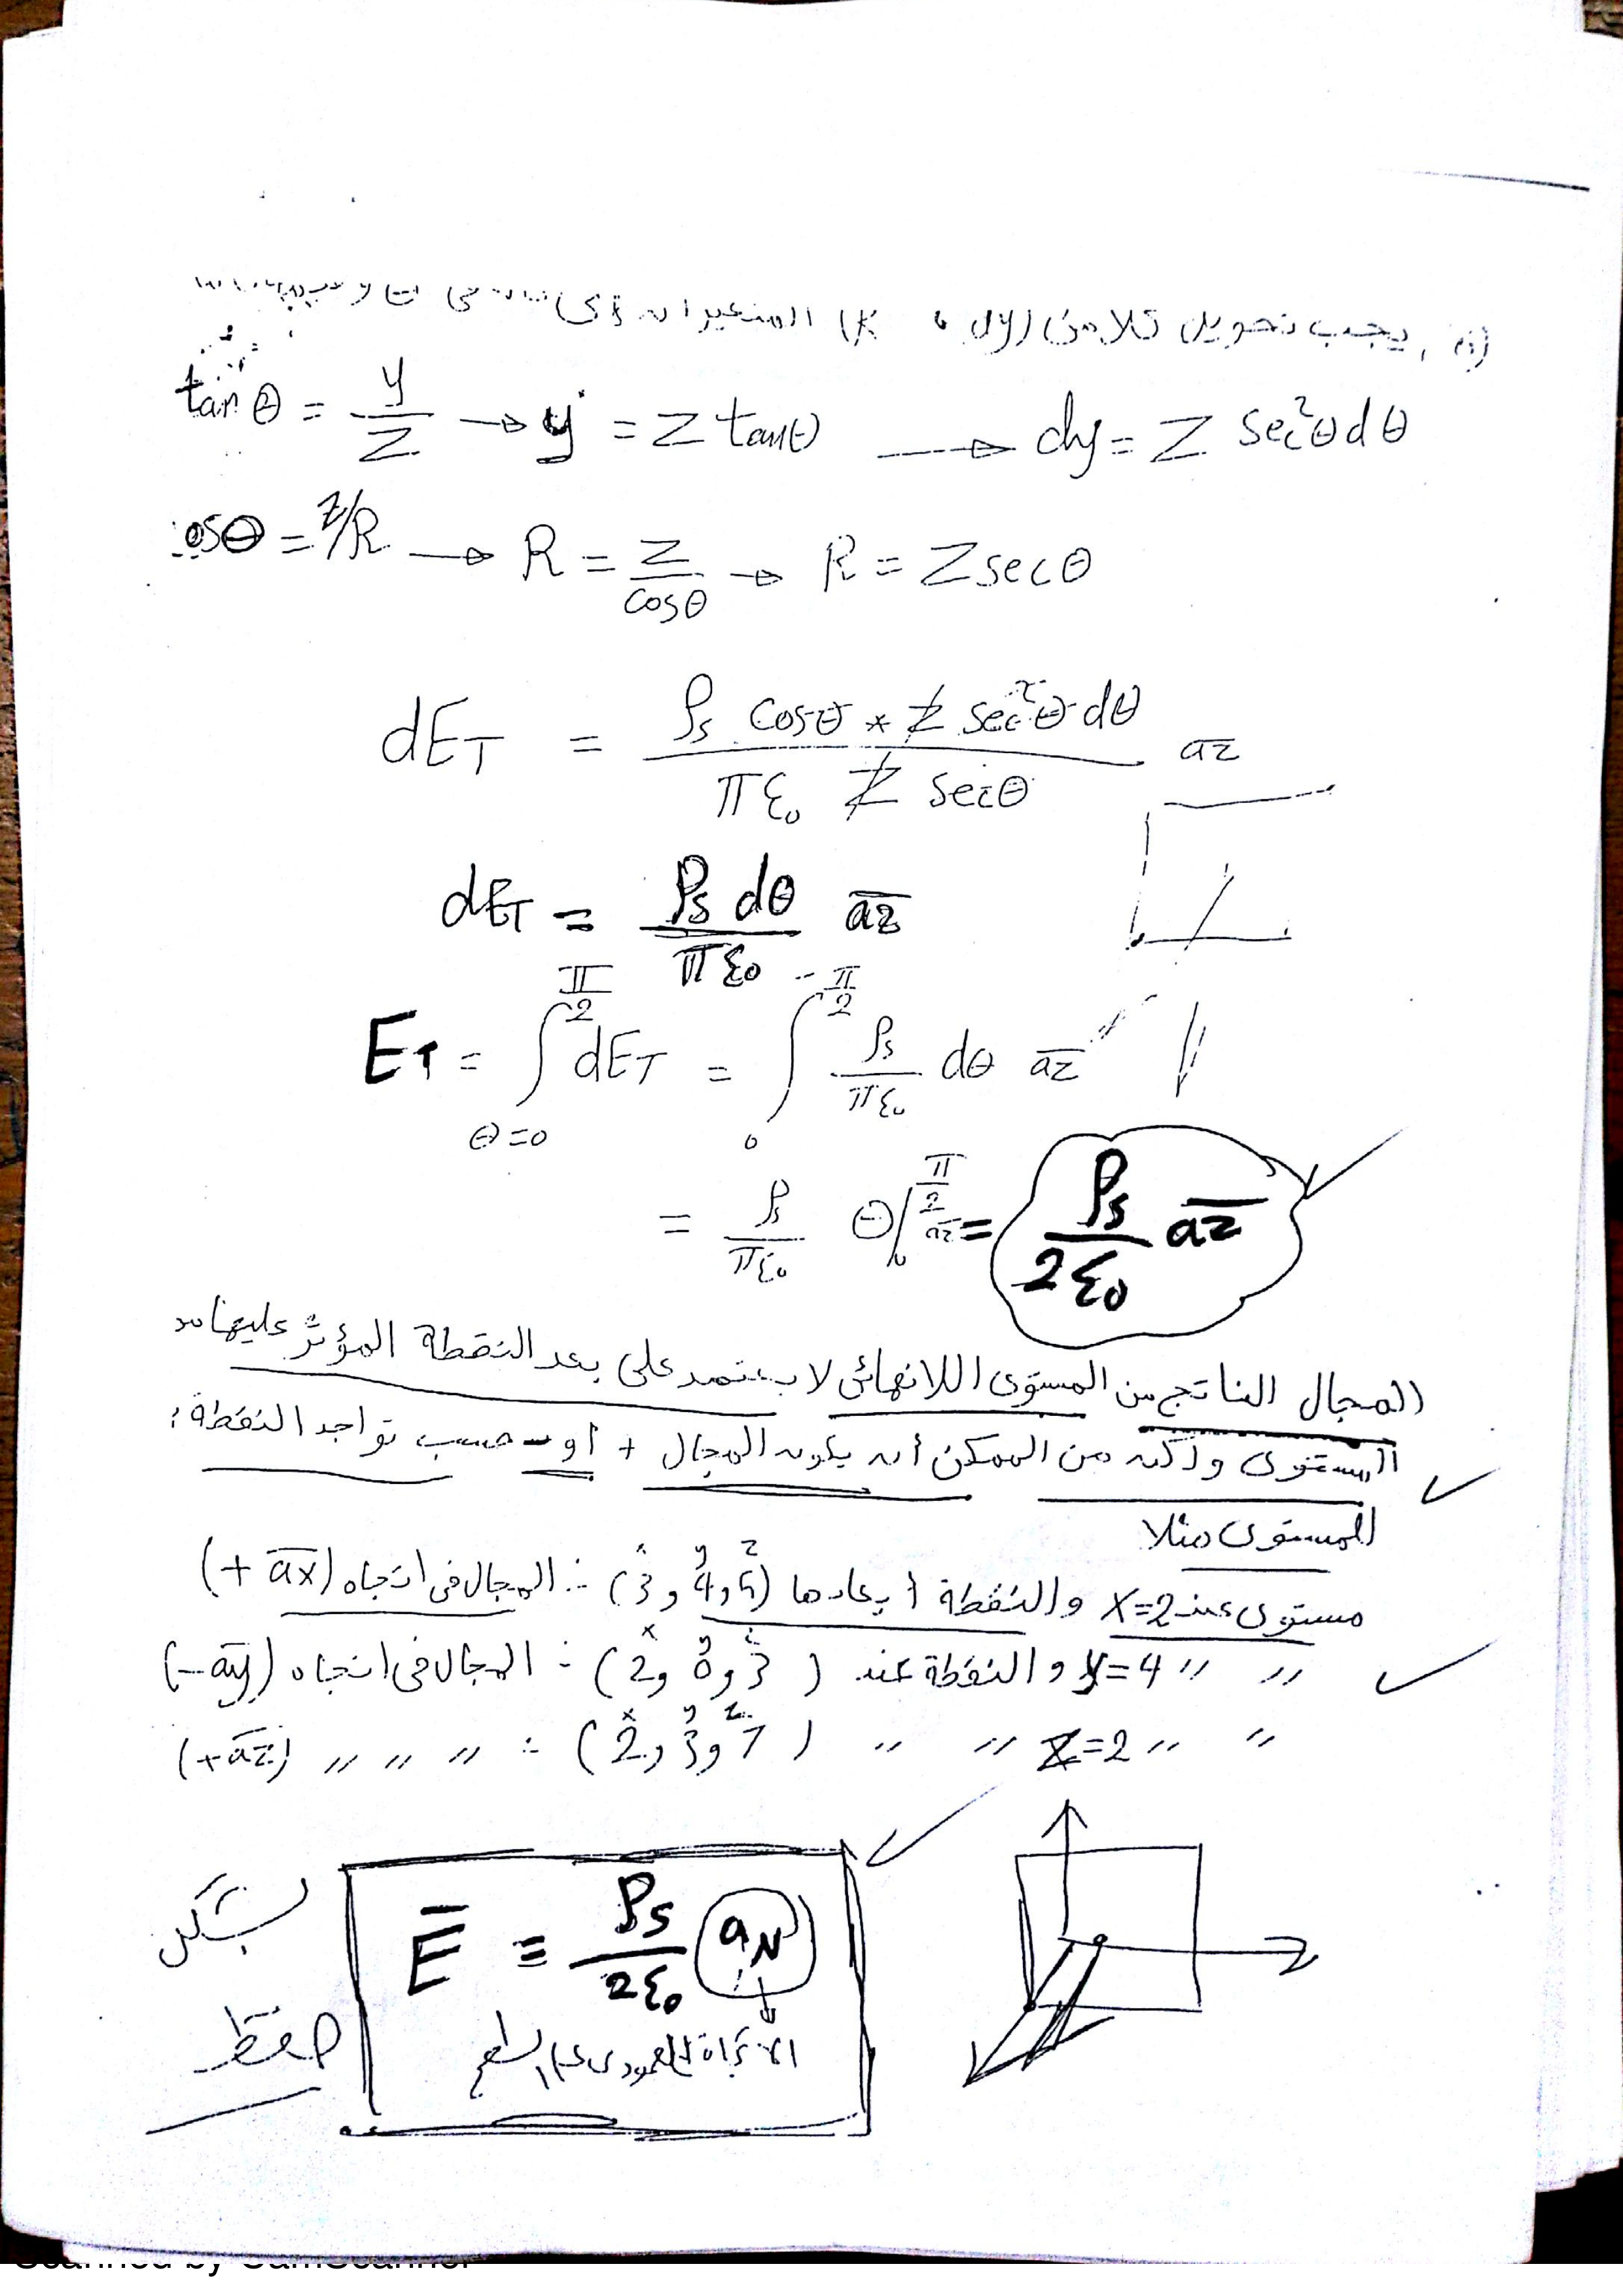 يجب تحويل كلا من (dy , R) المتغير الى
tan θ = y/z → y = z tan θ → dy = z sec²θ dθ
cosθ = z/R → R = z/cosθ → R = z secθ
dE_T = ρs cosθ * z sec²θ dθ / πε₀ z secθ  a̅z
dE_T = ρs dθ / πε₀  a̅z
E_T = ∫_{θ=0}^{π/2} dE_T = ∫_0^{π/2} ρs/πε₀ dθ a̅z
= ρs/πε₀ θ|_0^{π/2} a̅z = ρs/2ε₀ a̅z
المجال الناتج من المستوى اللانهائى لا يعتمد على بعد النقطة المؤثر عليها من
المستوى ولكن من الممكن أن يكون المجال + أو - حسب تواجد النقطة :
للمستوى مثلا
مستوى عند x=2 والنقطة أبعادها (3 و 4 و 5) ∴ المجال فى اتجاه (+ a̅x)
〃 〃 y=4 و النقطة عند (2 و 0 و 3) ∴ المجال فى اتجاه (- a̅y)
〃 〃 z=2 〃 〃 (2 و 3 و 7) ∴ 〃 〃 〃 (+ a̅z)
بشكل
E̅ = ρs/2ε₀ aN
الاتجاه العمودى على السطح
حفظ
Scanned by CamScanner